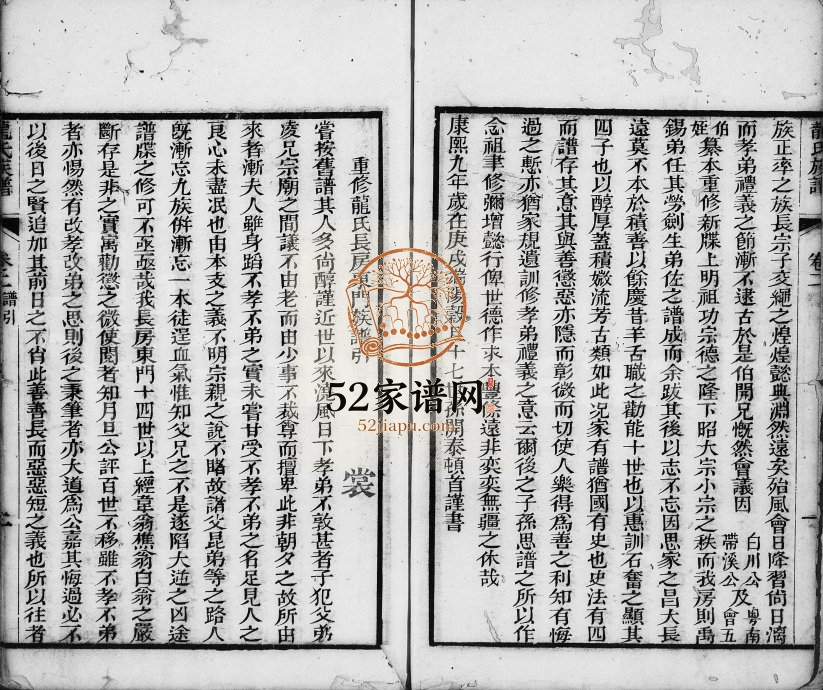 族正率之族長宗子交繩之煌煌懿典淵然遠矣殆風會日降習尙日漓
而孝弟禮義之節漸不逮古於是伯開兄慨然會議因
白川公及粵南
帶溪公會五
伯
姪
纂本重修新牒上明祖功宗德之隆下昭大宗小宗之秩而我房則禹
錫弟任其勞劍生弟佐之譜成而余跋其後以志不忘因思家之昌大長
遠莫不本於積善以餘慶昔羊舌職之勸能十世也以惠訓石奮之顯其
四子也以醇厚蓋積嫩流芳古類如此况家有譜猶國有史也史法有四
而譜存其意其與善懲惡亦隱而彰微而切使人樂得爲善之利知有悔
過之慙亦猶家規遺訓修孝弟禮義之意云爾後之子孫思譜之所以作
念祖聿修彌增懿行俾世德作求本豐條遠非奕奕無疆之休哉
康熙九年歲在庚戌陽穀旦十七孫開泰頓首謹書
重修龍氏長房東門族譜引
裳
嘗按舊譜其人多尙醇謹近世以來澆風日下孝弟不敦甚者子犯父弟
凌兄宗廟之間讓不由老而由少事不裁尊而擅卑此非朝夕之故所由
來者漸夫人雖身蹈不孝不弟之實未嘗甘受不孝不弟之名足見人之
良心未盡泯也由本支之義不明宗親之說不睹故諸父昆弟等之路人
旣漸忘九族併漸忘一本徒逞血氣惟知父兄之不是遂陷大逆之凶途
譜牒之修可不亟亟哉我長房東門十四世以上經章翁樵翁白翁之嚴
斷存是非之實寓勸懲之微使閱者知月旦公評百世不移雖不孝不弟
者亦惕然有改孝改弟之思則後之秉筆者亦大道爲公嘉其悔過必不
以後日之賢追加其前日之不肖此善善長而惡惡短之義也所以往者
龍氏族譜
卷之一
譜引
龍氏族譜
卷一
52家谱网
52jiapu.com